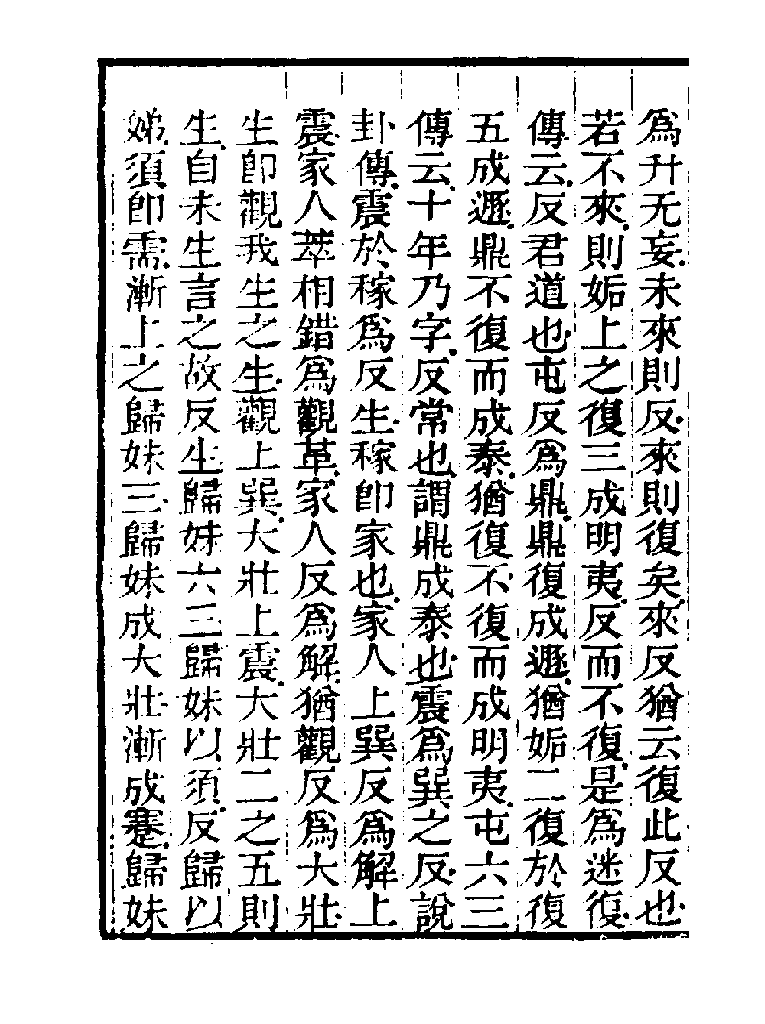 爲升无妄未來則反來則復矣來反猶云復此反也
若不來則姤上之復三成明夷反而不復是爲迷復
傳云反君道也屯反爲鼎鼎復成遯猶姤二復於復
五成遯鼎不復而成泰猶復不復而成明夷屯六三
傳云十年乃字反常也謂鼎成泰也震爲巽之反說
卦傳震於稼爲反生稼卽家也家人上巽反爲解上
震家人萃相錯爲觀革家人反爲解猶觀反爲大壯
生卽觀我生之生觀上巽大壯上震大壯二之五則
生自未生言之故反生歸妹六三歸妹以須反歸以
娣須卽需漸上之歸妹三歸妹成大壯漸成蹇歸妹